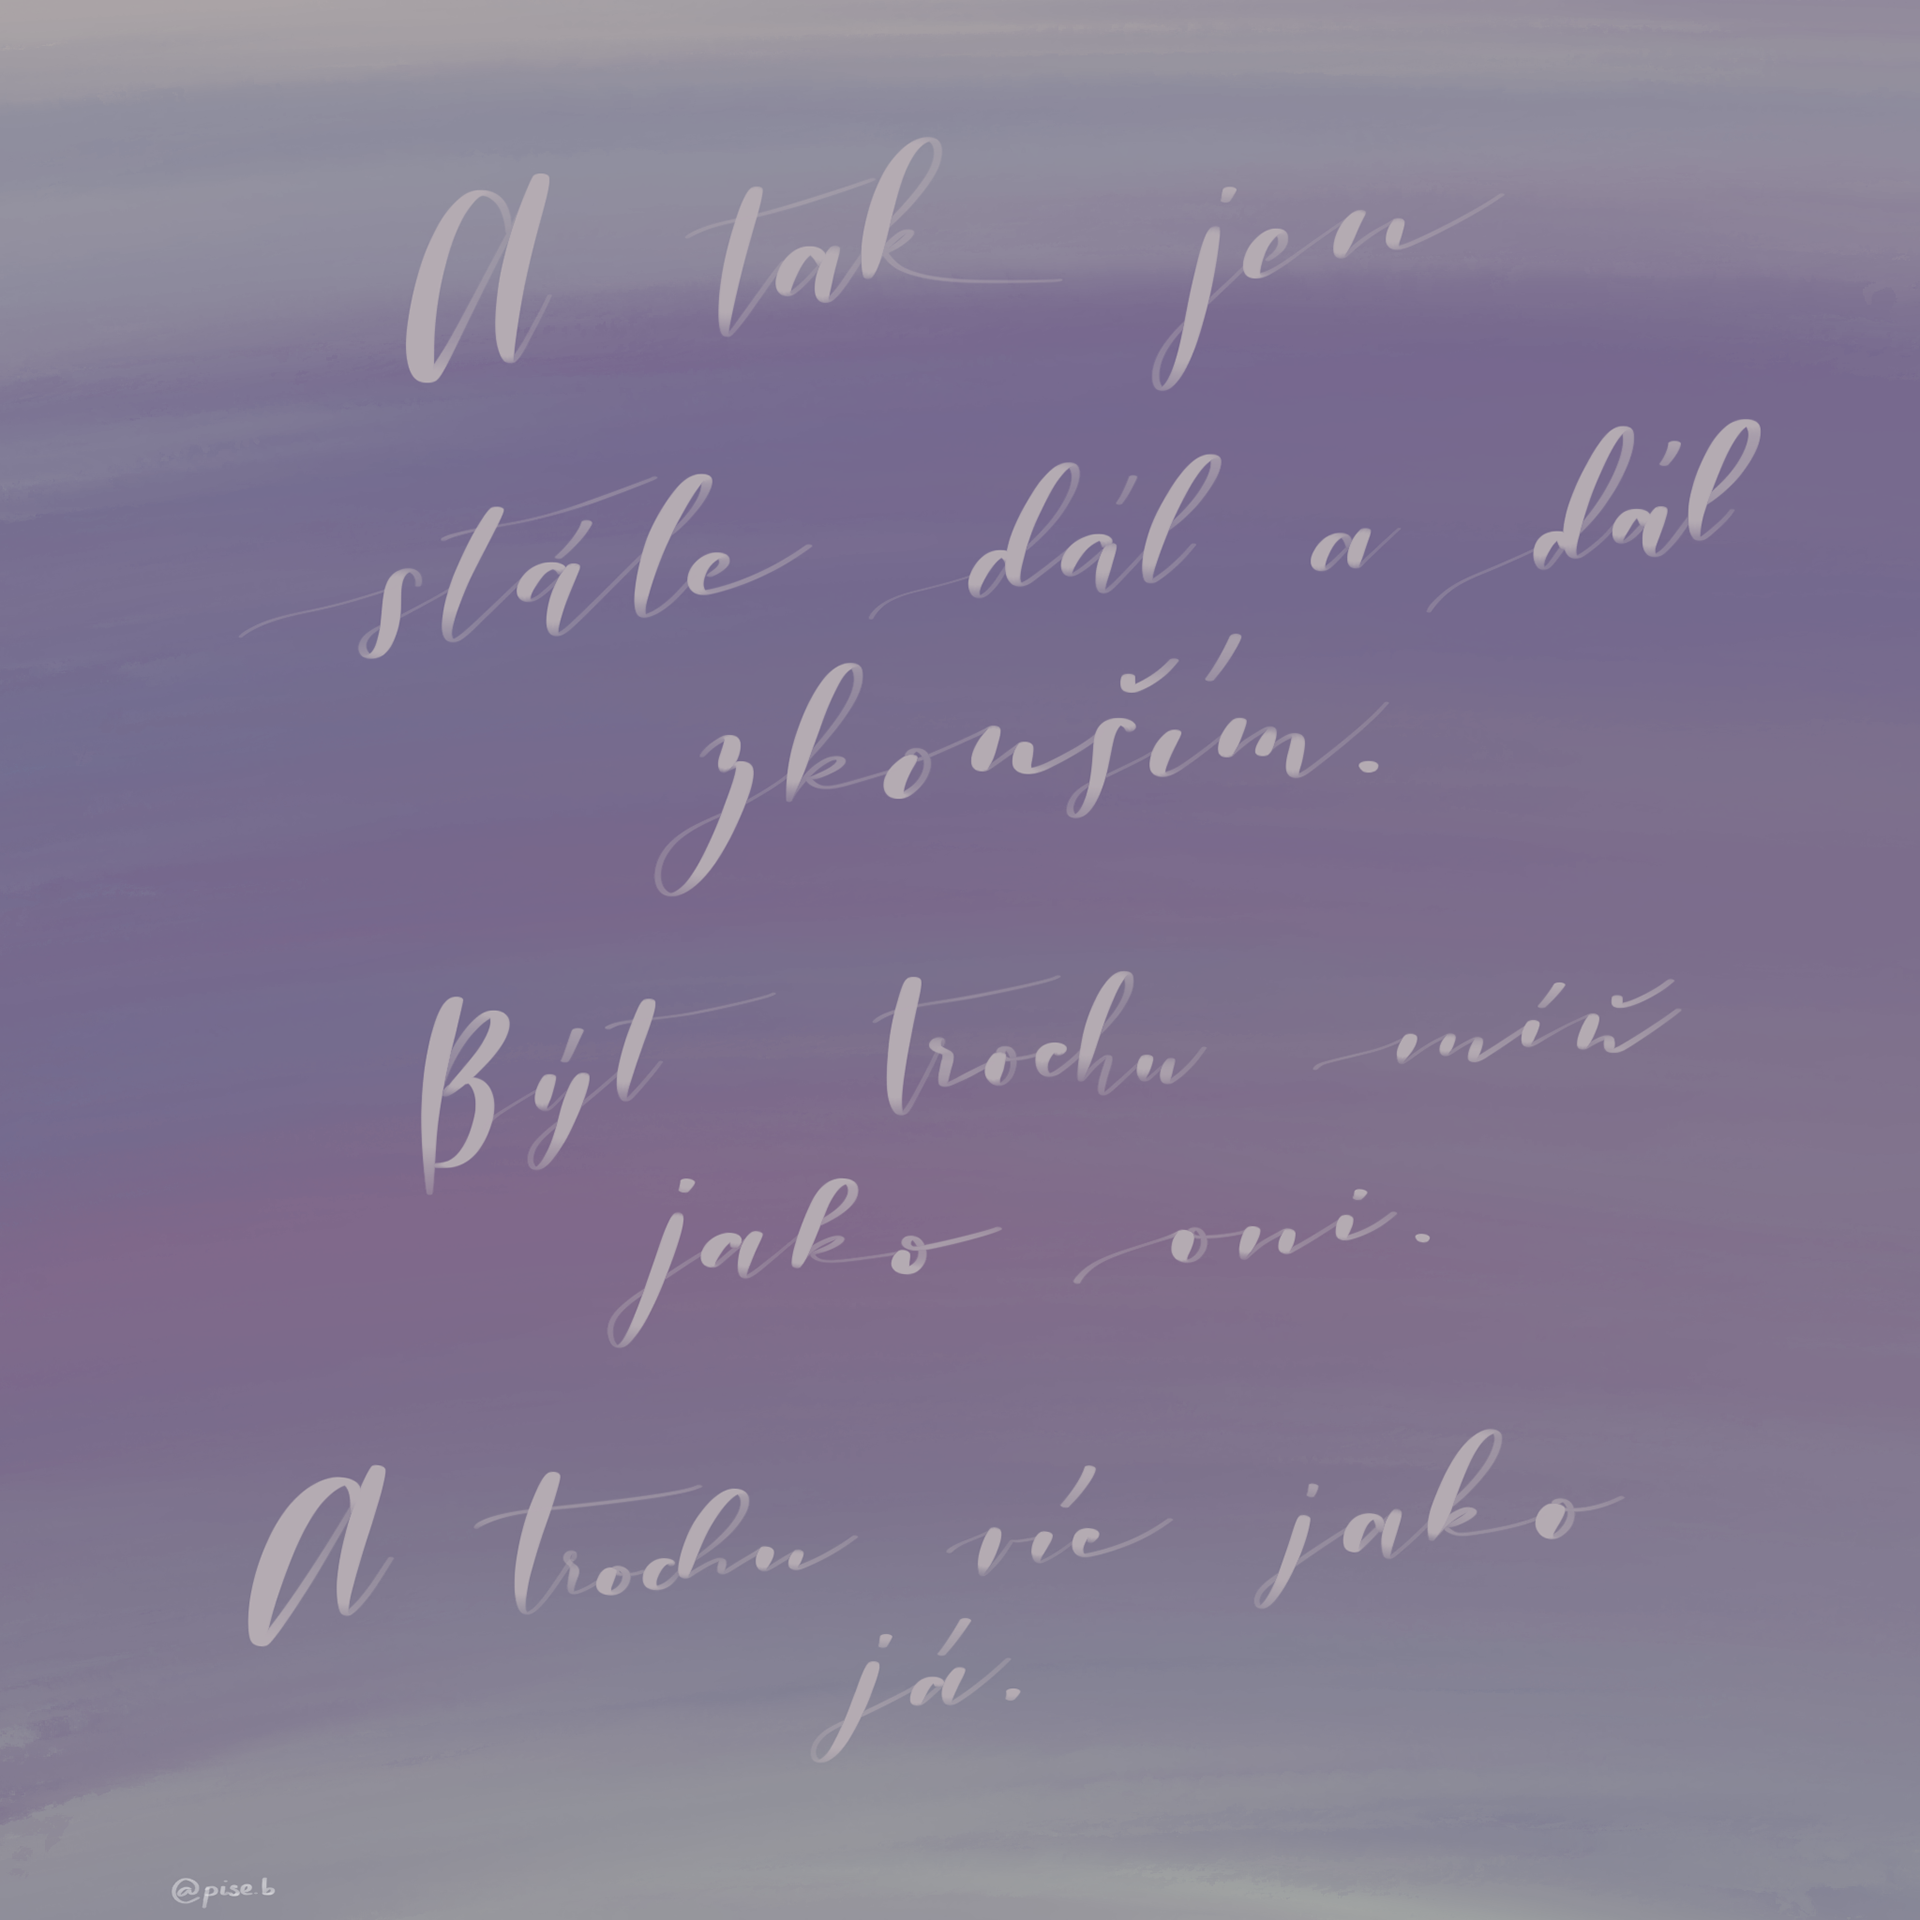 A tak jen
stále dál a dál
zkouším.
Být trochu míň
jako oni.
A trochu víc jako
já.
@pise.b